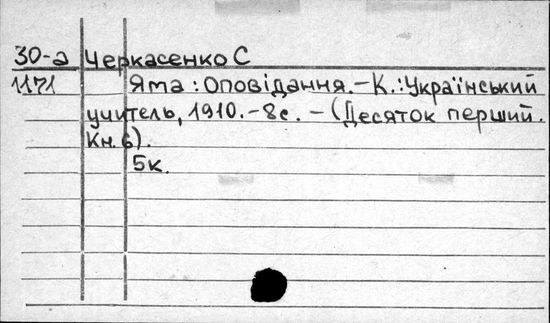 30-а Черкасенко С
1171 Яма : Оповідання. – К. : Український
учитель, 1910. – 8с. – (Десяток перший.
Кн. 6).
5к.